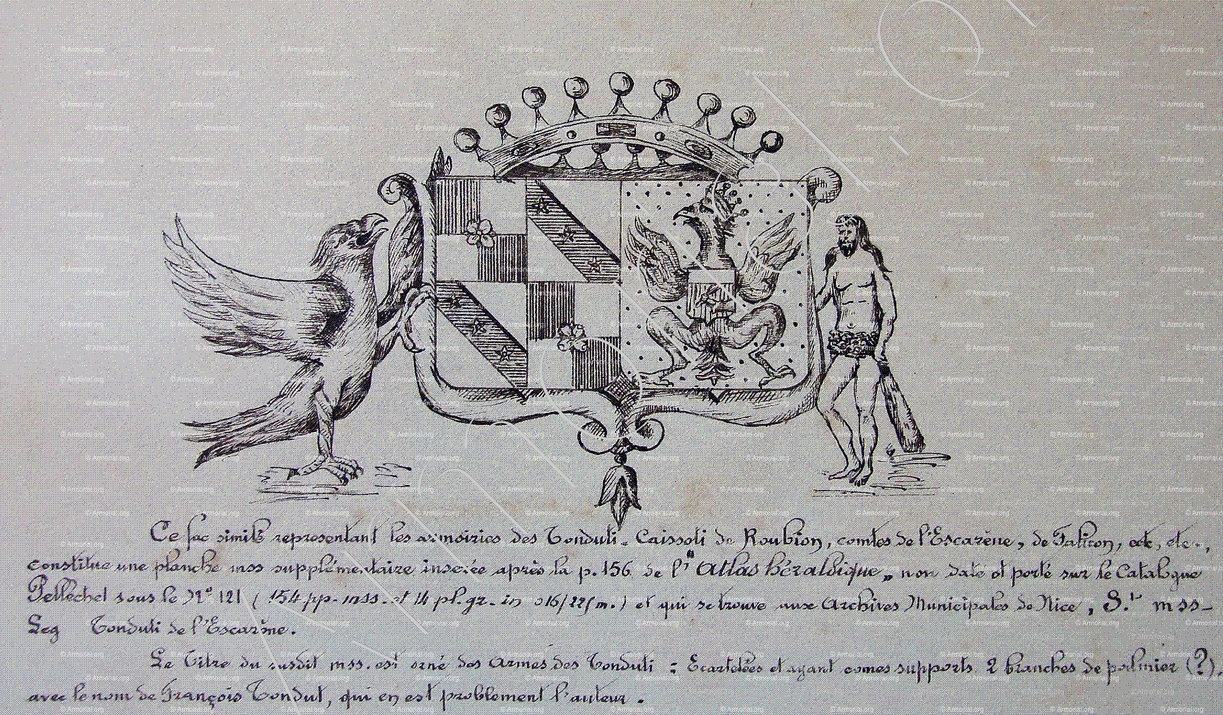 Ce fac simile representant les armoiries des Tonduti-Caissoti de Roubion, comtes de l'Escarène, de Falicon, etc, etc.,
constitue une planche mss supplémentaire insérée après la p. 156 de l'"Atlas héraldique", non daté et porté sur le Catalogue
Pellechet sous le Nº 121 (154 pp. mss. et 14 pl. gr. in 016/22 (m.) et qui se trouve aux Archives Municipales de Nice, S.t mss-
Leg Tonduti de l'Escarène.
Le Titre du susdit mss. est orné des Armes des Tonduti : Ecartelées et ayant comes supports 2 branches de palmier (?).
avec le nom de François Tondut, qui en est problement l'auteur.
© Armorial.org